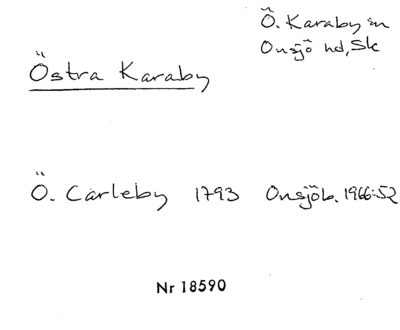 Ö. Karaby sn
Onsjö hd, Sk
Östra Karaby
Ö. Carleby 1793 Onsjöb. 1966:52
Nr 18590